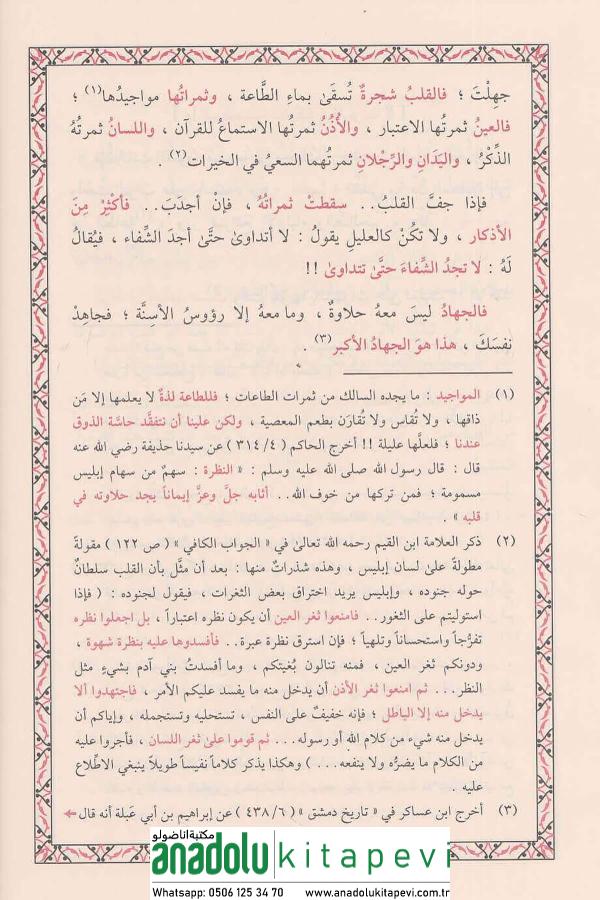 جهِلْتَ ؛ فالقلبُ شجرةٌ تُسقَىٰ بماءِ الطَّاعة ، وثمراتُها مواجيدُها(١) ؛
فالعينُ ثمرتُها الاعتبار ، والأُذُنُ ثمرتُها الاستماعُ للقرآن ، واللسانُ ثمرتُهُ
الذِّكْرُ ، واليَدَانِ والرِّجْلانِ ثمرتُهما السعيُ في الخيرات(٢) .
فإذا جفَّ القلبُ.. سقطتْ ثمراتُهُ ، فإنْ أجدَبَ.. فأكثِرْ مِنَ
الأذكار ، ولا تكُنْ كالعليلِ يقولُ : لا أتداوىٰ حتَّىٰ أجدَ الشِّفاء ، فيُقالُ
لَهُ : لا تجدُ الشِّفاءَ حتَّىٰ تتداوىٰ !!
فالجهادُ ليس معهُ حلاوةٌ ، وما معهُ إلا رؤوسُ الأسِنَّة ؛ فجاهِدْ
نفسَكَ ، هذا هوَ الجهادُ الأكبر(٣) .
(١) المواجيد : ما يجده السالك من ثمرات الطاعات ؛ فللطاعة لذةٌ لا يعلمها إلا مَن
ذاقها ، ولا تُقاس ولا تُقارَن بطعم المعصية ، ولكن علينا أن نتفقَّد حاسَّة الذوق
عندنا ؛ فلعلَّها عليلة !! أخرج الحاكم ( ٣١٤/٤ ) عن سيدنا حذيفة رضي الله عنه
قال : قال رسول الله صلى الله عليه وسلم : « النظرة : سهمٌ من سهام إبليس
مسمومة ؛ فمن تركها من خوف الله.. أثابه جلَّ وعزَّ إيماناً يجد حلاوته في
قلبه » .
(٢) ذكر العلامة ابن القيم رحمه الله تعالىٰ في « الجواب الكافي » ( ص ١٢٢ ) مقولةً
مطولةً علىٰ لسان إبليس ، وهذه شذراتٌ منها : بعد أن مثَّل بأن القلب سلطانٌ
حوله جنوده ، وإبليس يريد اختراق بعض الثغرات ، فيقول لجنوده : ( فإذا
استوليتم على الثغور.. فامنعوا ثغر العين أن يكون نظره اعتباراً ، بل اجعلوا نظره
تفرُّجاً واستحساناً وتلهياً ؛ فإن استرق نظرة عبرة.. فأفسدوها عليه بنظرة شهوة ،
ودونكم ثغر العين ، فمنه تنالون بُغيتكم ، وما أفسدتُ بني آدم بشيءٍ مثل
النظر... ثم امنعوا ثغر الأذن أن يدخل منه ما يفسد عليكم الأمر ، فاجتهدوا ألا
يدخل منه إلا الباطل ؛ فإنه خفيفٌ على النفس ، تستحليه وتستجمله ، وإياكم أن
يدخل منه شيء من كلام الله أو رسوله... ثم قوموا علىٰ ثغر اللسان ، فأجروا عليه
من الكلام ما يضرُّه ولا ينفعه... ) وهكذا يذكر كلاماً نفيساً طويلاً ينبغي الاطِّلاع
عليه .
(٣) أخرج ابن عساكر في « تاريخ دمشق » ( ٤٣٨/٦ ) عن إبراهيم بن أبي عَبلة أنه قال
مكتبة اناضولو
anadolu kitapevi
Whatsapp: 0506 125 34 70 www.anadolukitapevi.com.tr